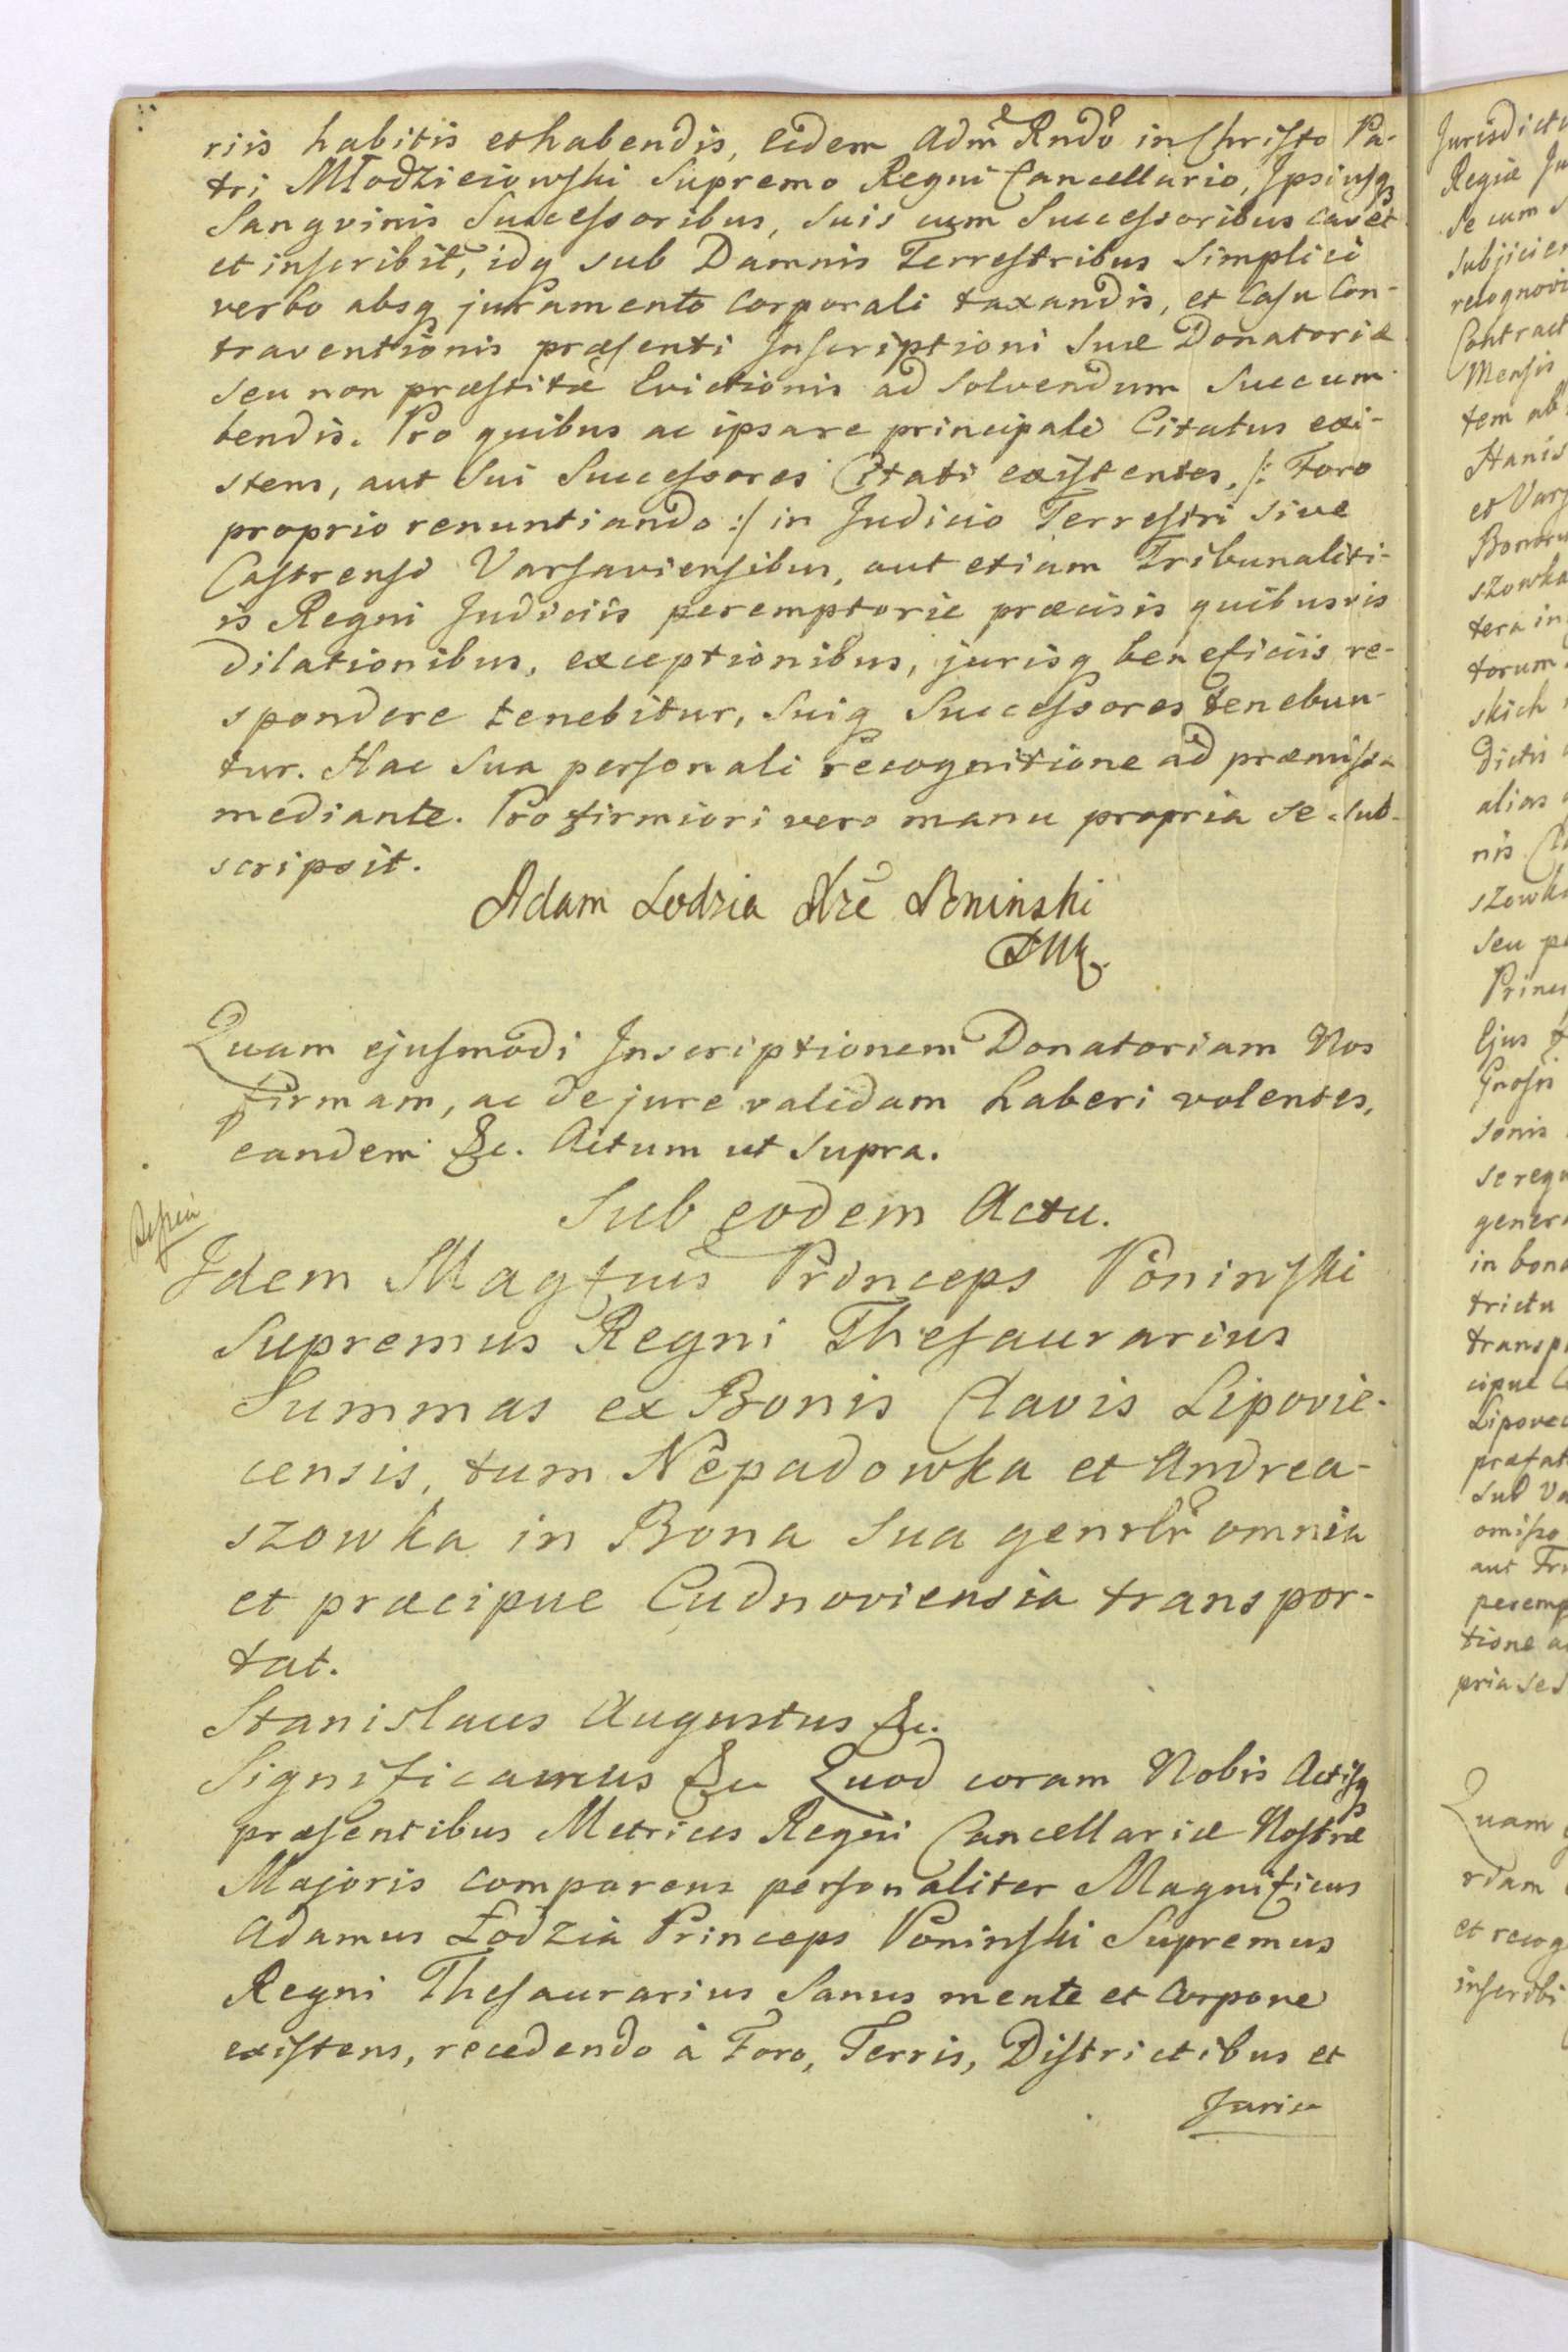 riis habitis et habendis, eidem Admẽ Rndõ in Christo Pa-
tri Młodzieiowski Supremo Regni Cancellario, Ipsiusq
Sangvinis Successoribus, suis cum Successoribus cavet
et inscribit, idq sub Damnis Terrestribus simplici
verbo absq juramento corporali taxandis, et Casu Con-
traventionis præsenti Inscriptioni suæ Donatoriæ
seu non præstitæ Evictionis ad solvendum succum-
bendis. Pro quibus ac ipsa re principali Citatus exi-
stens, aut Sui Successores Citati existentes, /: Foro
proprio renuntiando :/ in Judicio Terrestri sive
Castrensi Varsaviensibus, aut etiam Tribunaliti-
is Regni Judiciis peremptorie præcisis quibusvis
dilationibus, exceptionibus, jurisq beneficiis re-
spondere tenebitur, Suiq Successores tenebun-
tur. Hac Sua personali recognitione ad præmissa
mediante. Pro firmiori vero manu propria se sub-
scripsit.
Adam Lodzia Xże Poninski
Quam ejusmodi Inscriptionem Donatoriam Nos
firmam, ac de jure validam haberi volentes,
eandem &c. Actum ut supra.
Sub eodem Actu.
Idem Magfcus Princeps Poninski
Supremus Regni Thesaurarius
Summas ex Bonis Clavis Lipovie-
censis, tum Nepadowka et Andrea-
szowka in Bona sua genrlr omnia
et præcipue Cudnoviensia transpor-
tat.
Stanislaus Augustus &c.
Significamus &c Quod coram Nobis Actisq
præsentibus Metrices Regni Cancellariæ Nostræ
Majoris comparens personaliter Magnificus
Adamus Łodzia Princeps Poninski Supremus
Regni Thesaurarius Sanus mente et Corpore
existens, recedendo à Foro, Terris, Districtibus et
Juris
Jurisdictio
Regiæ Ju
Se cum S
subjicien
recognovi
Contract
Mensis
tem ab
Stanis
et Vars
Bonoru
szowka
tera in
torum
skich
dictis
alias
nis
szowka
seu pe
Princi
Ejus
Gnosis
sonis
se regu
genera
in bona
trictu
transp
cipue
Lipovec
præfat
sub Va
omisso
aut Tri
peremp
tione a
pria se s
Quam
rdam
et recog
inscribi